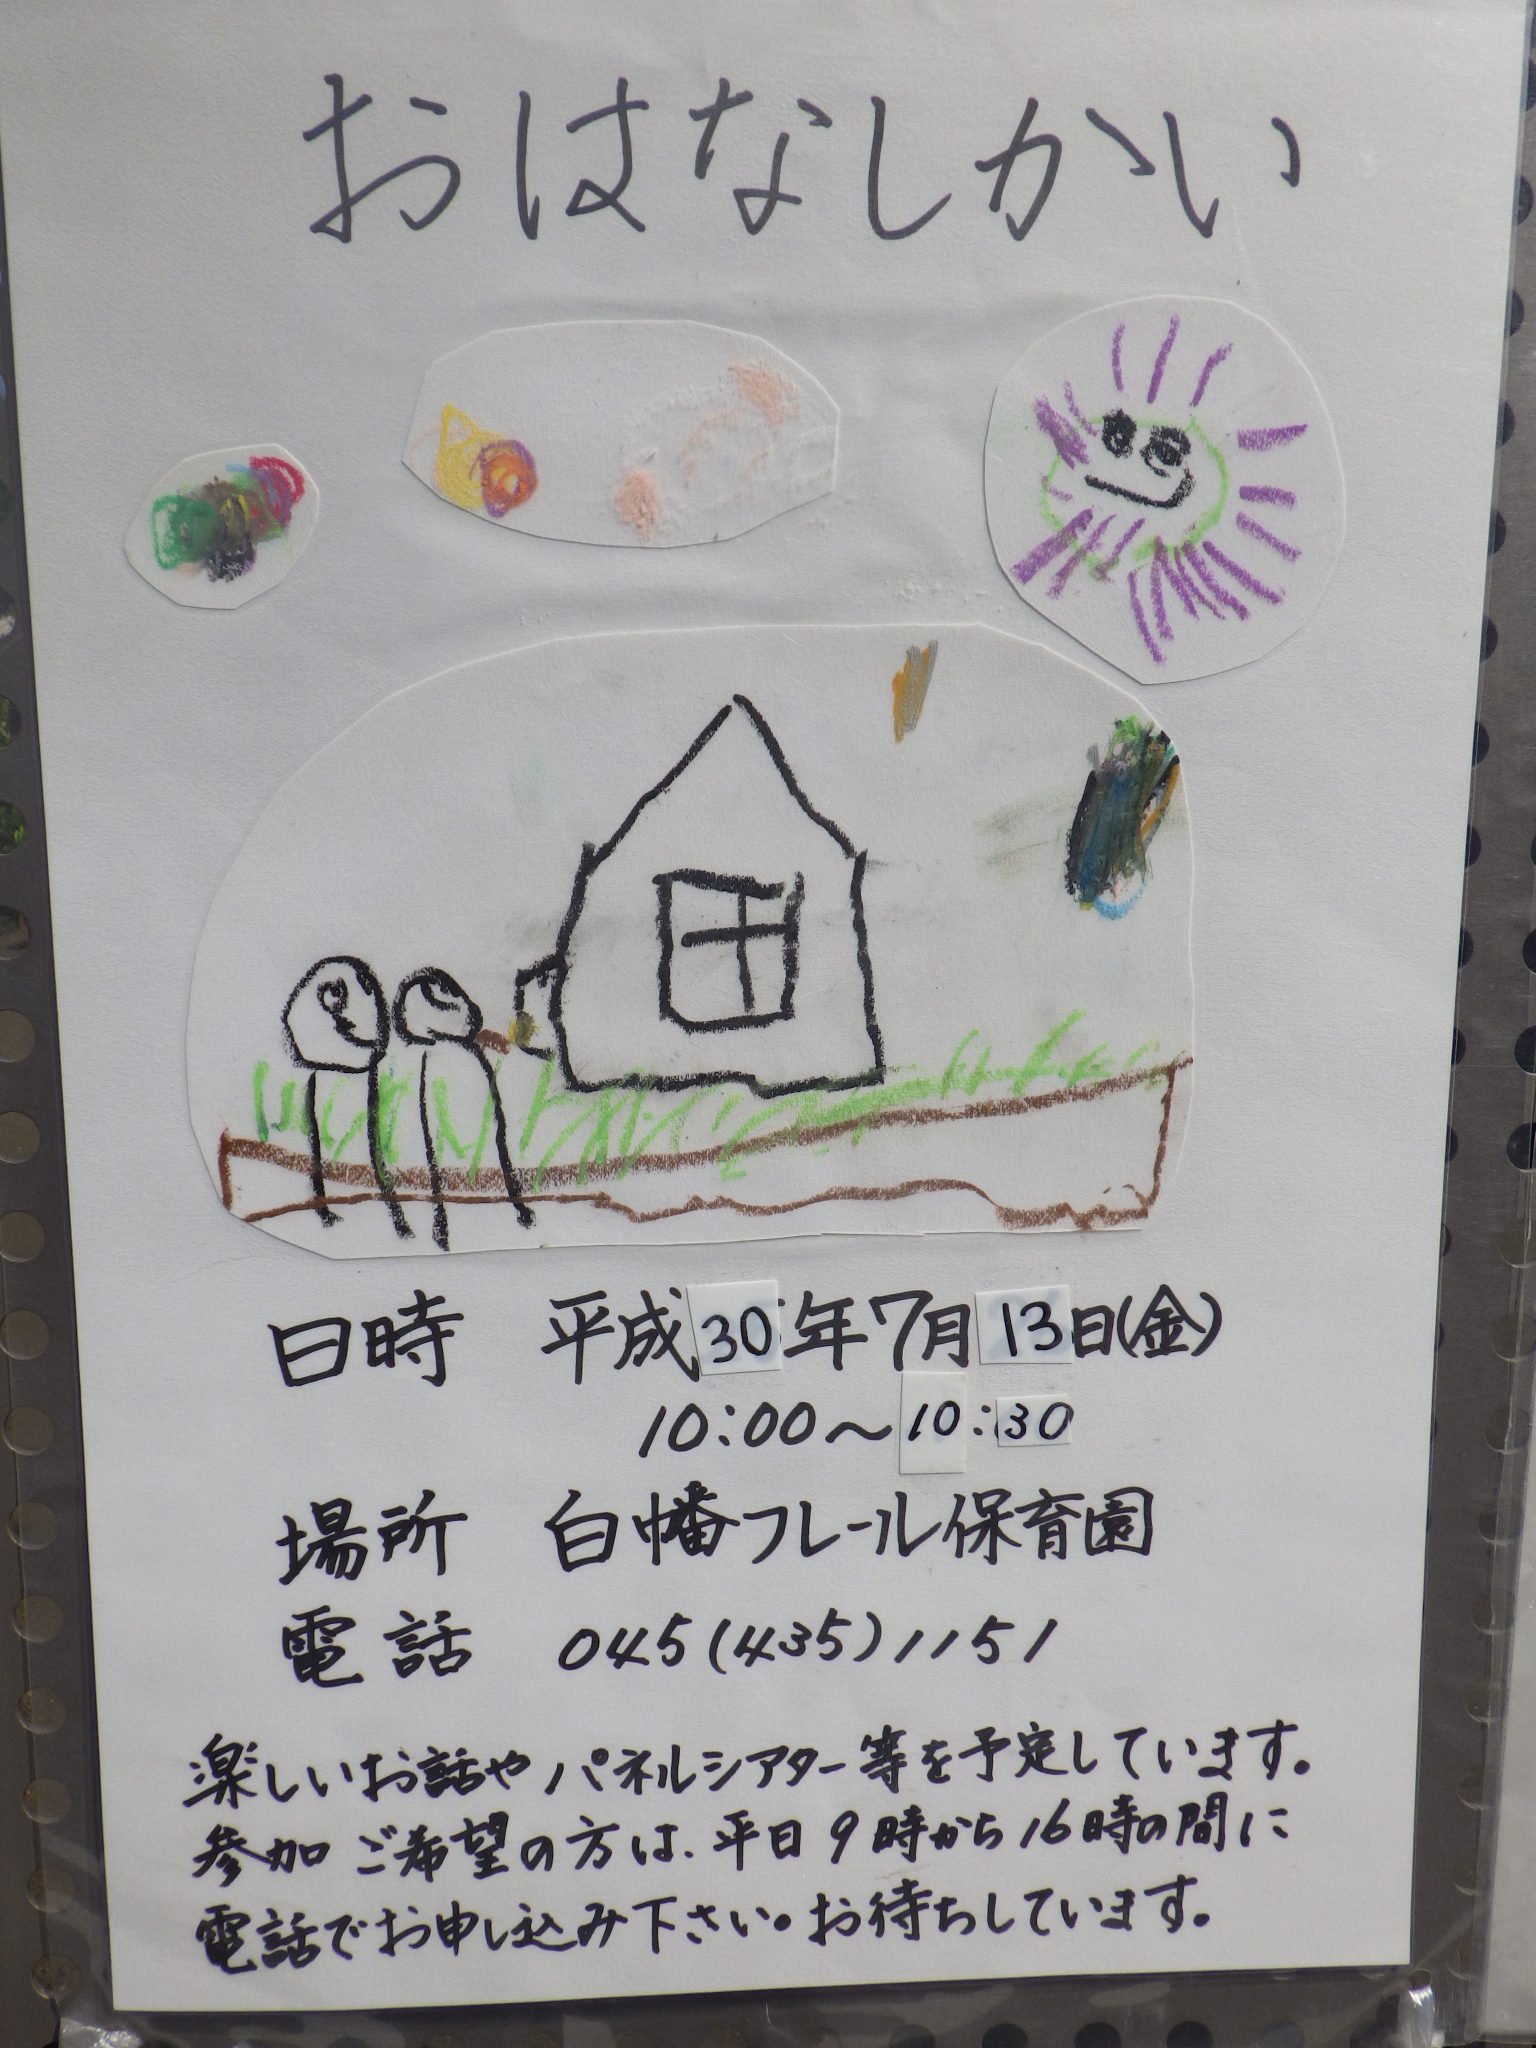 おはなしかい
日時 平成30年7月13日(金)
10:00~10:30
場所 白幡フレール保育園
電話 045(435)1151
楽しいお話やパネルシアター等を予定しています。
参加ご希望の方は、平日9時から16時の間に
電話でお申し込み下さい。お待ちしています。